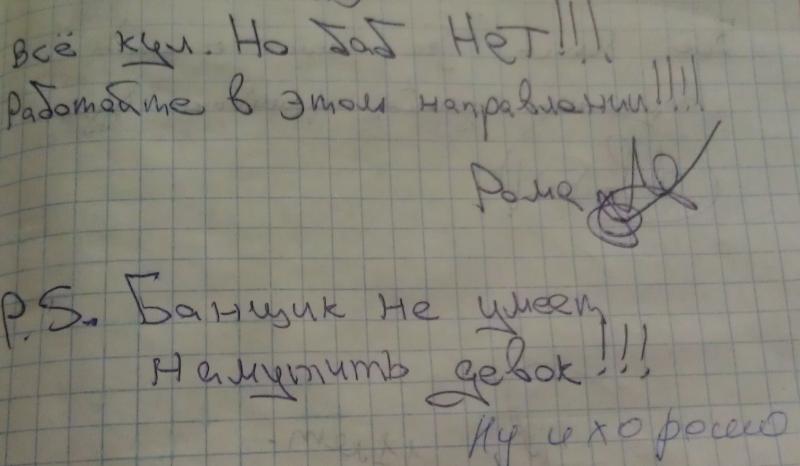 Всё кул. Но баб Нет!!!
Работайте в этом направлении!!!!
Рома
P.S. Банщик не умеет
намутить девок!!!
Ну и хорошо